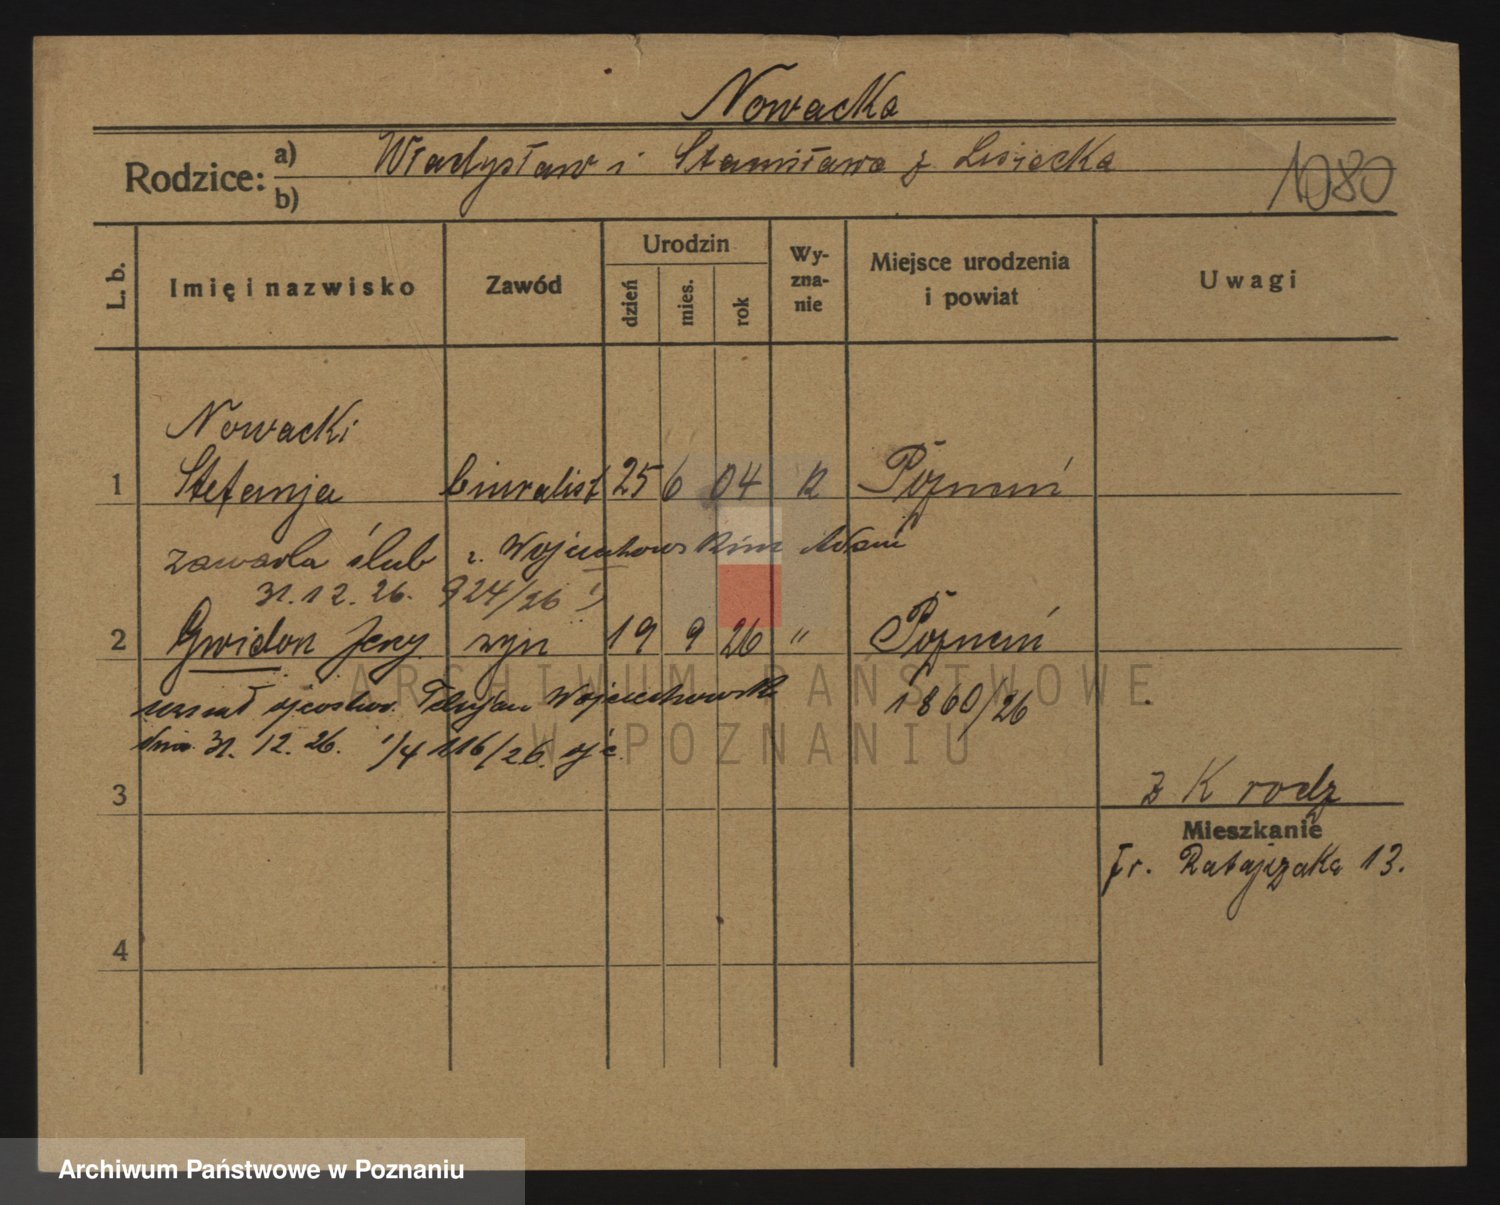 Nowacka
Rodzice: a) Władysław i Stanisława z Lisiecka
b)
1080
L. b.
Imię i nazwisko
Zawód
Urodzin
dzień
mies.
rok
Wy-
zna-
nie
Miejsce urodzenia
i powiat
Uwagi
Nowacki
1 Stefanja biuralist 25 6 04 R Poznań
zawarła ślub z Wojciechowskim Adam
31.12.26. 924/26
2 Gwidon Jerzy syn 19 9 26 " Poznań
ojcostwo. Wojciechowski 1860/26
dnia 31. 12. 26. 1/4 116/26. ojc.
ARCHIWUM PAŃSTWOWE
W POZNANIU
3
z K rodz
Mieszkanie
Fr. Ratajczaka 13.
4
Archiwum Państwowe w Poznaniu